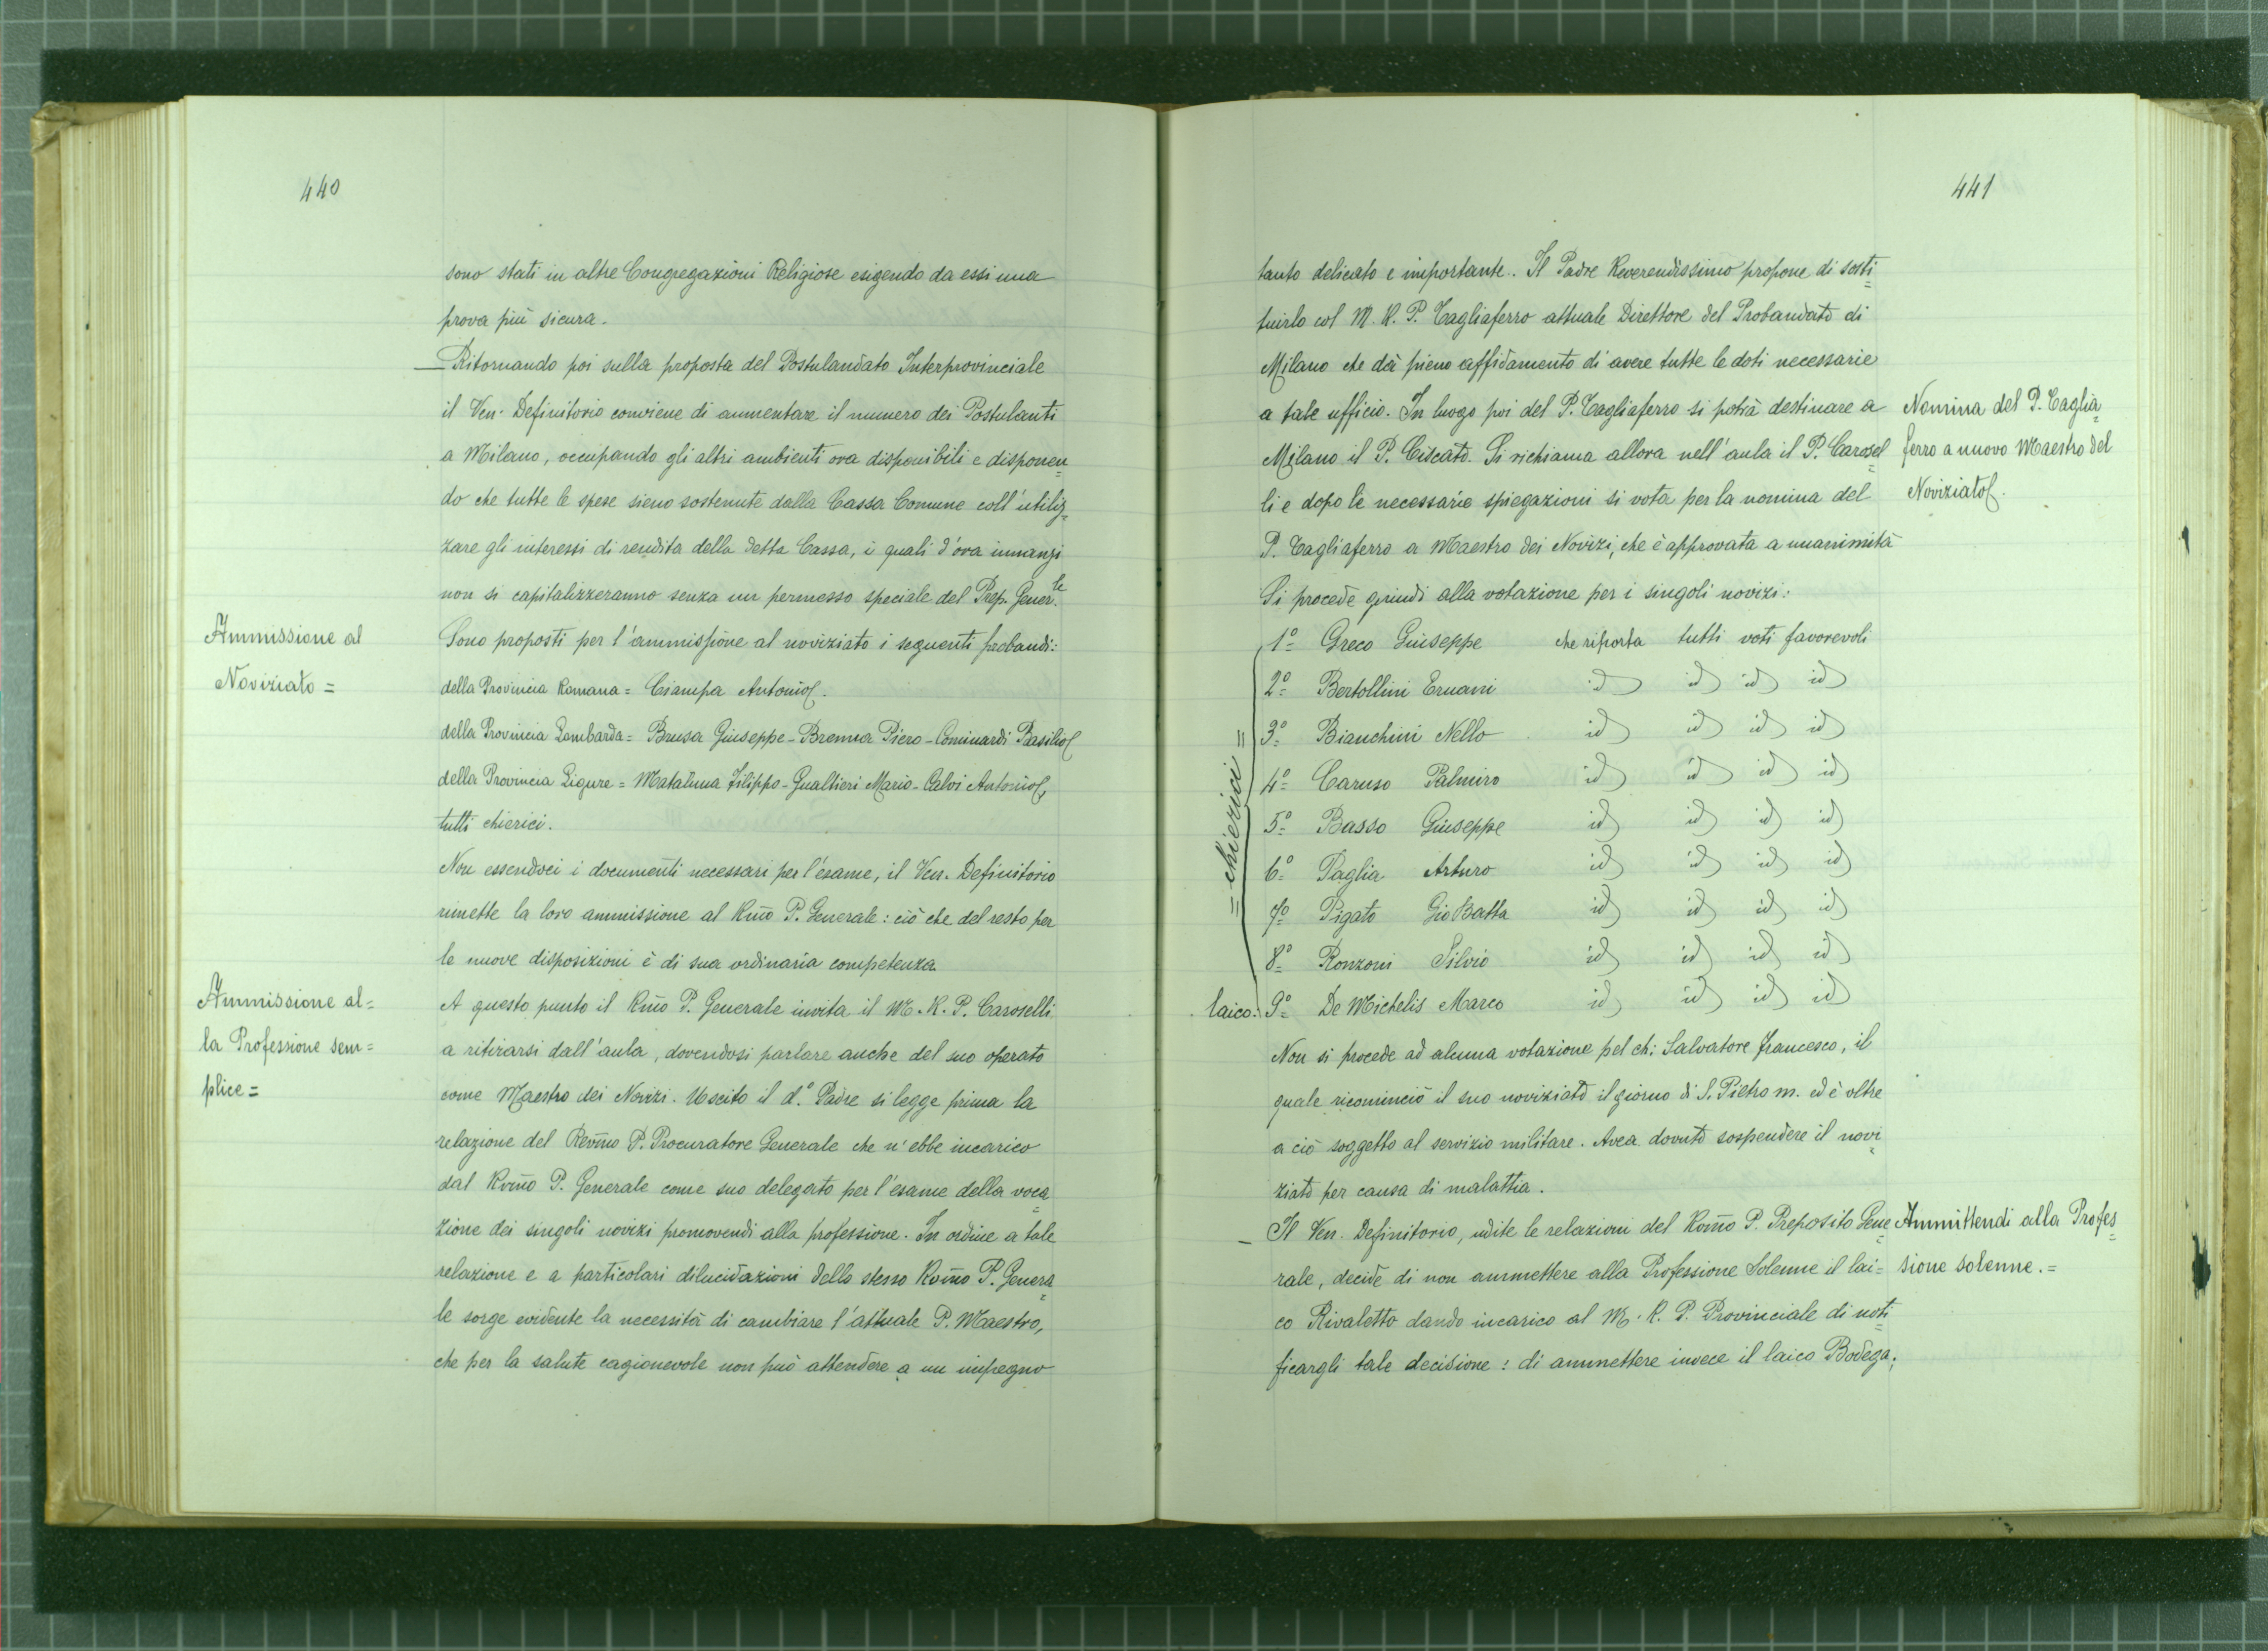 440
sono stati in altre Congregazioni Religiose esigendo da essi una
prova più sicura.
— Ritornando poi sulla proposta del Postulandato Interprovinciale
il Ven. Definitorio conviene di aumentare il numero dei Postulanti
a Milano, occupando gli altri ambienti ora disponibili e disponen=
do che tutte le spese sieno sostenute dalla Cassa Comune coll'utiliz=
zare gli interessi di rendita della detta Cassa, i quali d'ora innanzi
non si capitalizzeranno senza un permesso speciale del Prep. Gener.le
Ammissione al
Noviziato =
Sono proposti per l'ammissione al noviziato i seguenti probandi:
della Provincia Romana = Ciampa Antonio.
della Provincia Lombarda = Brusa Giuseppe - Brenna Piero - Cominardi Basilio
della Provincia Ligure = Mataluna Filippo - Gualtieri Mario - Calvi Antonio,
tutti chierici.
Non essendoci i documenti necessari per l'esame, il Ven. Definitorio
rimette la loro ammissione al Rmo P. Generale: ciò che del resto per
le nuove disposizioni è di sua ordinaria competenza.
Ammissione al=
la Professione sem=
plice =
A questo punto il Rmo P. Generale invita il M. R. P. Caroselli
a ritirarsi dall'aula, dovendosi parlare anche del suo operato
come Maestro dei Novizi. Uscito il d.o Padre si legge prima la
relazione del Revmo P. Procuratore Generale che n'ebbe incarico
dal Rvmo P. Generale come suo delegato per l'esame della voca=
zione dei singoli novizi promovendi alla professione. In ordine a tale
relazione e a particolari dilucidazioni dello stesso Rvmo P. Genera=
le sorge evidente la necessità di cambiare l'attuale P. Maestro,
che per la salute cagionevole non può attendere a un impegno
441
tanto delicato e importante. Il Padre Reverendissimo propone di sosti=
tuirlo col M. R. P. Tagliaferro attuale Direttore del Probandato di
Milano che dà pieno affidamento di avere tutte le doti necessarie
a tale ufficio. In luogo poi del P. Tagliaferro si potrà destinare a
Milano il P. Ciscato. Si richiama allora nell'aula il P. Carosel=
li e dopo le necessarie spiegazioni si vota per la nomina del
P. Tagliaferro a Maestro dei Novizi, che è approvata a unanimità
Nomina del P. Taglia=
ferro a nuovo Maestro del
Noviziato.
Si procede quindi alla votazione per i singoli novizi:
= chierici =
1º Greco Giuseppe che riporta tutti voti favorevoli
2º Bertollini Ernani id id id id
3º Bianchini Nello id id id id
4º Caruso Palmiro id id id id
5º Basso Giuseppe id id id id
6º Paglia Arturo id id id id
7º Pigato Gio Batta id id id id
8º Ronzoni Silvio id id id id
laico. 9º De Michelis Marco id id id id
Non si procede ad alcuna votazione pel ch: Salvatore Francesco, il
quale ricominciò il suo noviziato il giorno di S. Pietro m. ed è oltre
a ciò soggetto al servizio militare. Avea dovuto sospendere il novi=
ziato per causa di malattia.
— Il Ven. Definitorio, udite le relazioni del Rvmo P. Preposito Gene=
rale, decide di non ammettere alla Professione Solenne il lai=
co Rivaletto dando incarico al M. R. P. Provinciale di noti=
ficargli tale decisione: di ammettere invece il laico Bodega;
Ammittendi alla Profes=
sione solenne. =